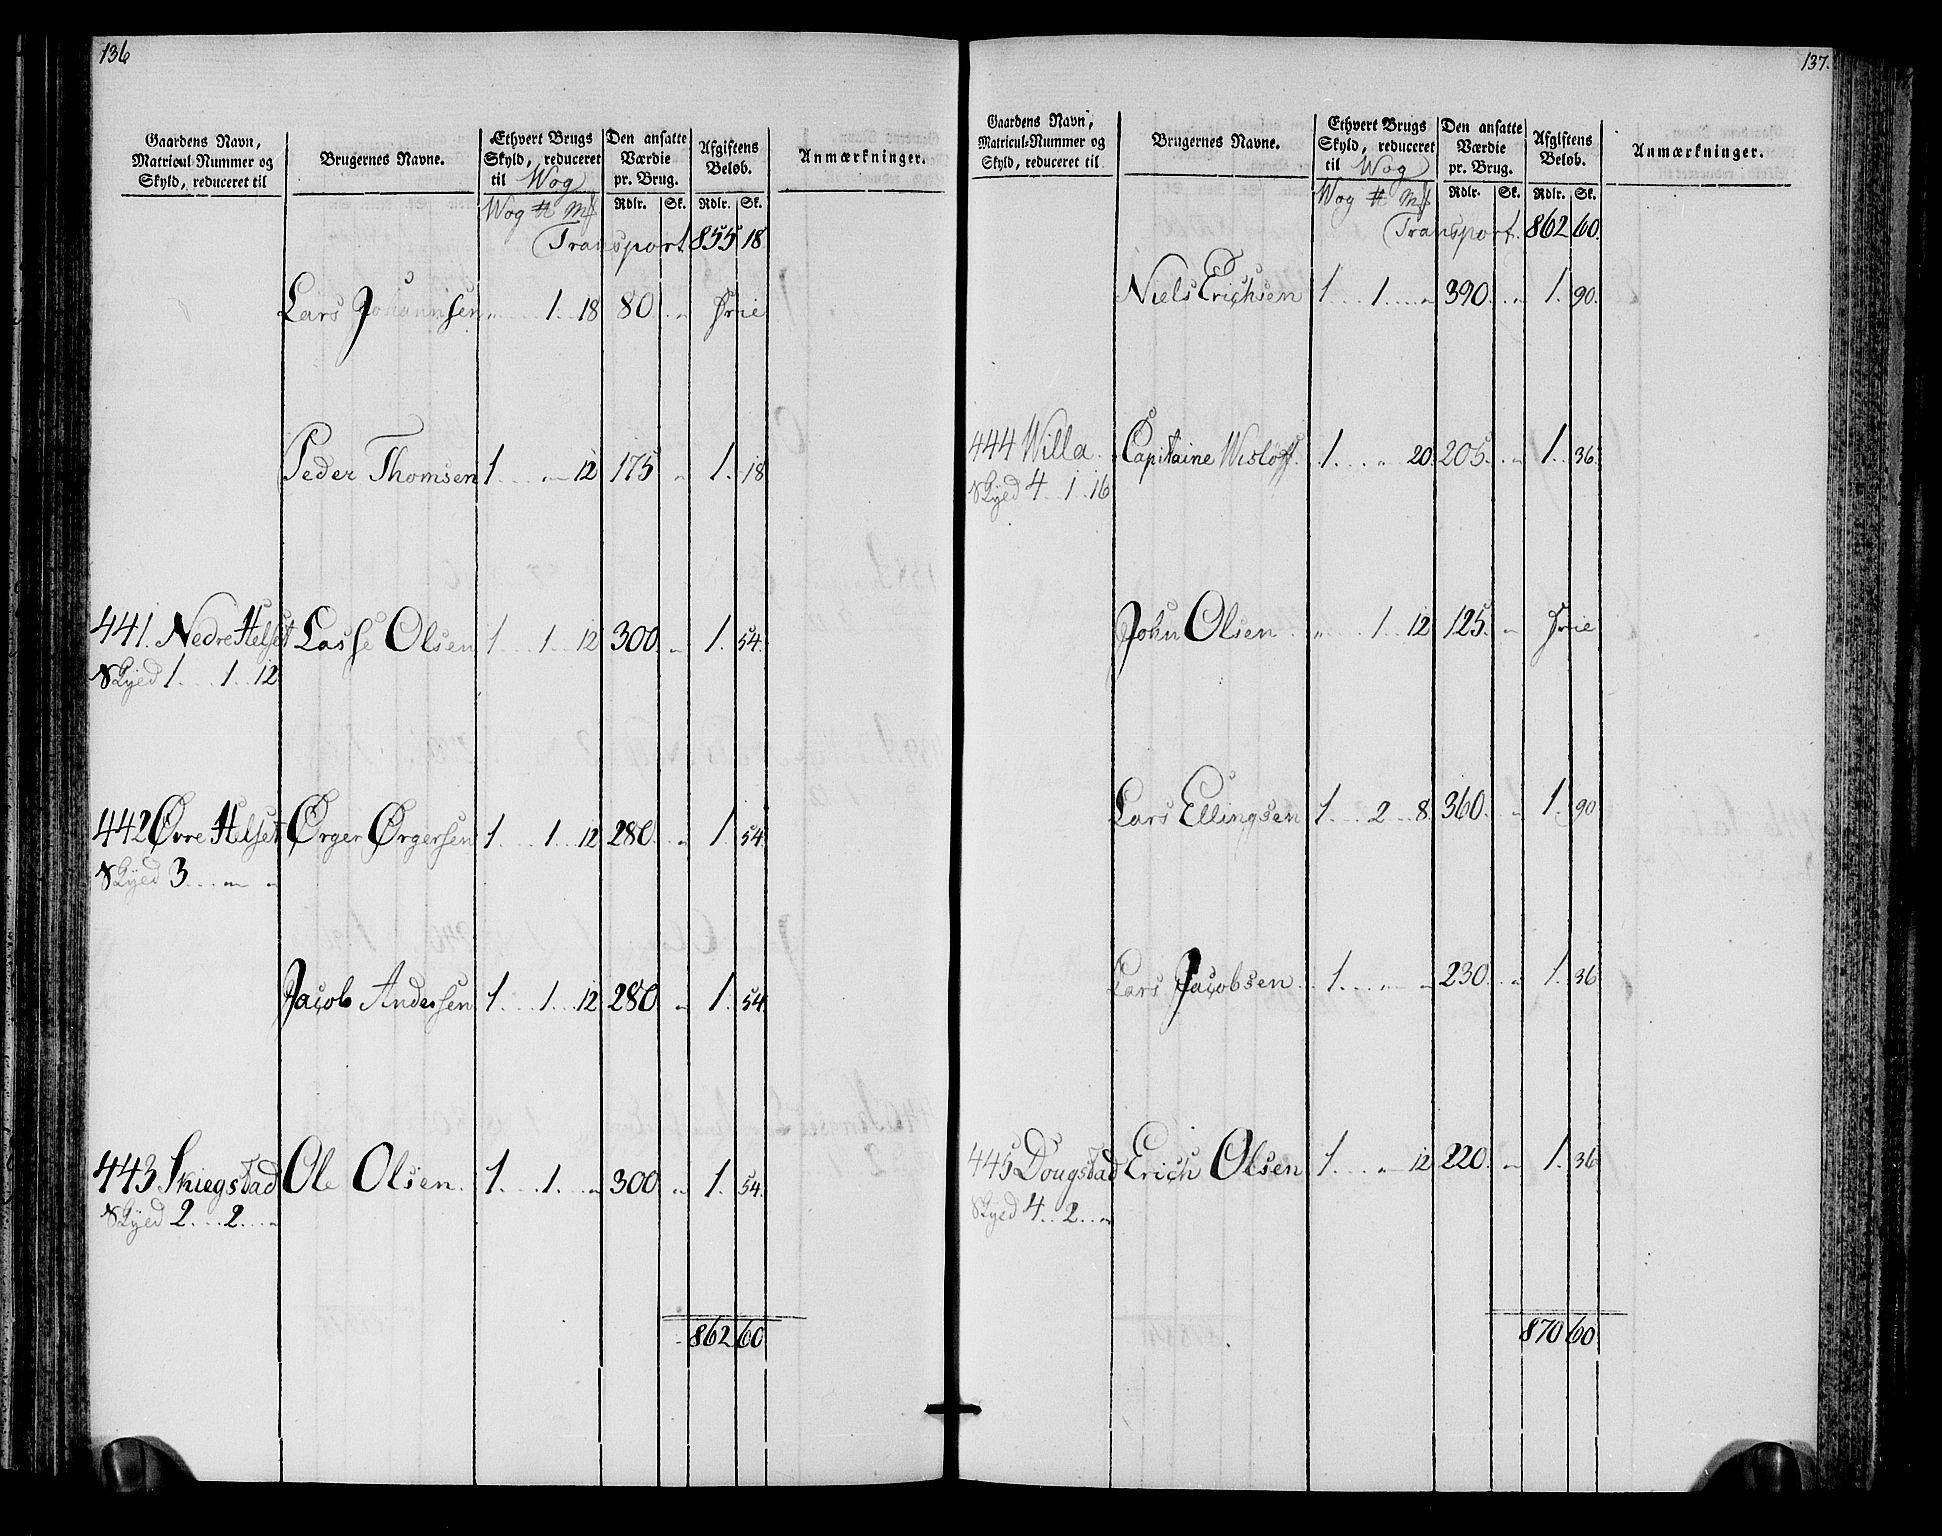 136
Gaardens Navn, Matricul-Nummer og Skyld, reduceret til
Brugernes Navne.
Ethvert Brugs Skyld, reduceret til Wog
Den ansatte Værdie pr. Brug.
Afgiftens Beløb.
Anmærkninger.
Wog ℔ Mƒ Rdlr. Sk. Rdlr. Sk.
Transport 855 18
Lars Johannsen „ 1 18 80 „ Frie
Peder Thomsen 1 „ 12 175 „ 1. 18
441. Nedre Helset Lasse Olsen 1 1 12 300 „ 1. 54.
Skyld 1 1 12
442 Øvre Helset Ørger Ørgersen 1 1 12 280 „ 1. 54
Skyld 3 „ „
Jacob Andersen 1 1 12 280 „ 1. 54.
443 Skiegstad Ole Olsen. 1. 1. „ 300 „ 1. 54.
Skyld 2 2 „
862 60
137.
Gaardens Navn, Matricul-Nummer og Skyld, reduceret til
Brugernes Navne.
Ethvert Brugs Skyld, reduceret til Wog
Den ansatte Værdie pr. Brug.
Afgiftens Beløb.
Anmærkninger.
Wog ℔ Mƒ Rdlr. Sk. Rdlr. Sk.
Transport. 862 60.
Niels Erichsen 1 1 „ 390. „ 1. 90.
444 Willa. Capitaine Wisløff. 1. „ 20. 205. „ 1. 36.
Skyld 4 1 16
John Olsen „ 1 12 125. „ Frie
Lars Ellingsen 1 2 8. 360. „ 1. 90
Lars Jacobsen. 1. „ „ 230. „ 1. 36
445 Dougstad Erich Olsen 1. „ 12 220. „ 1. 36
Skyld 4 2 „
870 60